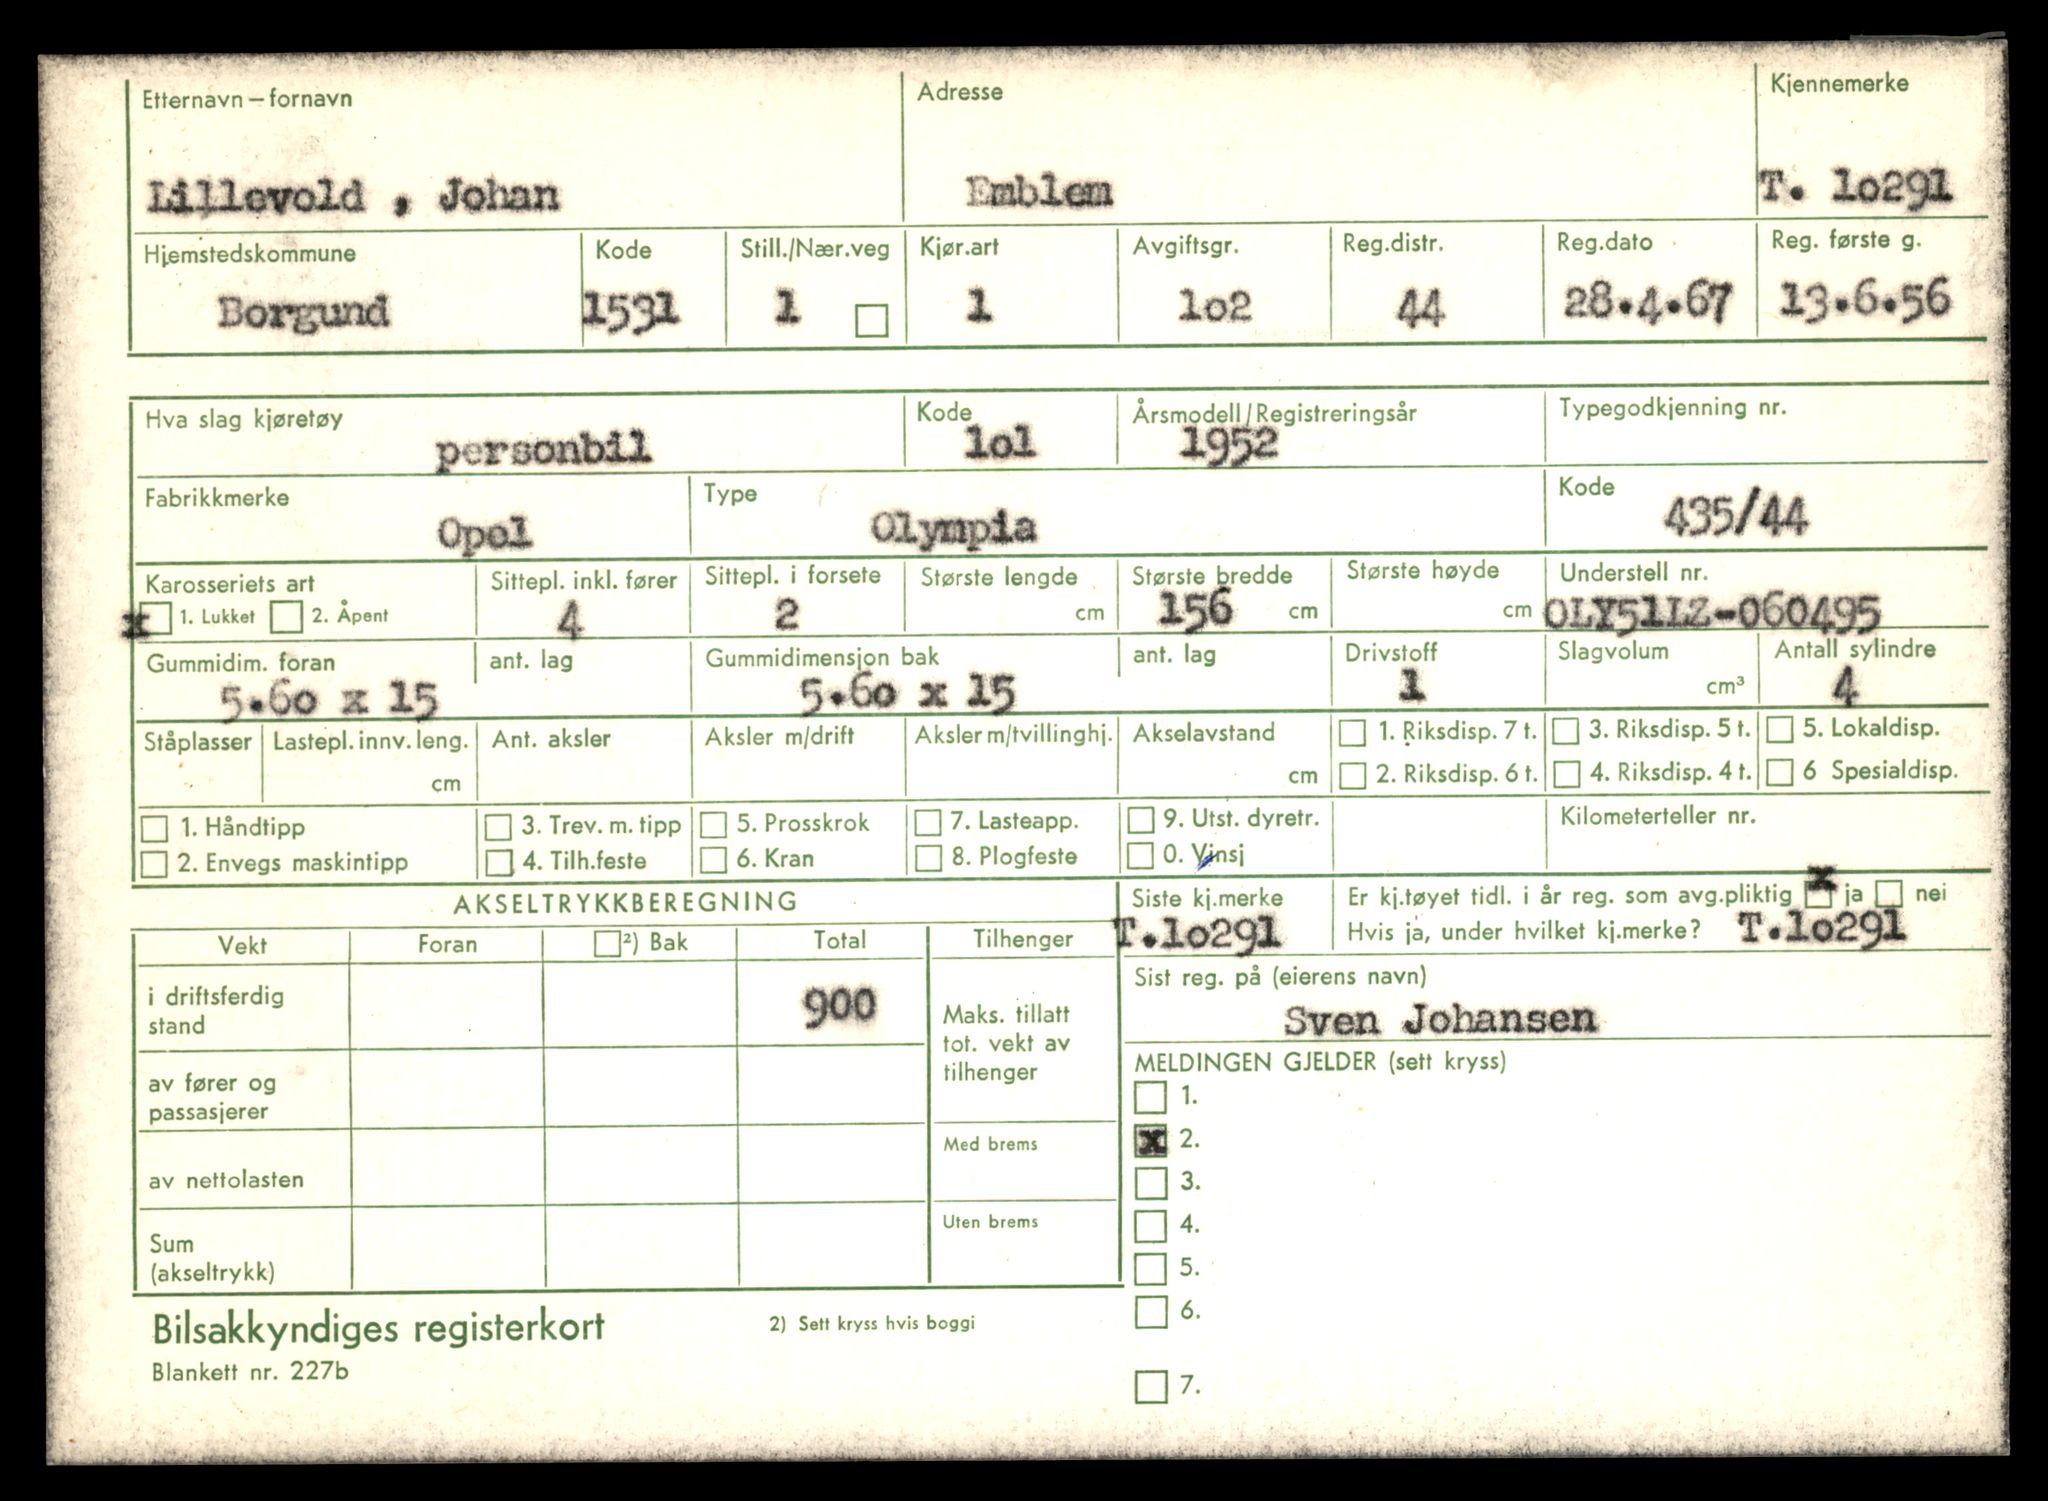 Etternavn – fornavn Adresse Kjennemerke
Lillevold , Johan Emblem T. 1o291
Hjemstedskommune Kode Still./Nær.veg Kjør.art Avgiftsgr. Reg.distr. Reg.dato Reg. første g.
Borgund 1531 1 1 1o2 44 28.4.67 13.6.56
Hva slag kjøretøy Kode Årsmodell/Registreringsår Typegodkjenning nr.
personbil 1o1 1952
Fabrikkmerke Type Kode
Opel Olympia 435/44
Karosseriets art Sittepl. inkl. fører Sittepl. i forsete Største lengde Største bredde Største høyde Understell nr.
x 1. Lukket 2. Åpent 4 2 cm 156 cm cm OLY51LZ-060495
Gummidim. foran ant. lag Gummidimensjon bak ant. lag Drivstoff Slagvolum Antall sylindre
5.6o x 15 5.6o x 15 1 cm³ 4
Ståplasser Lastepl. innv. leng. Ant. aksler Aksler m/drift Aksler m/tvillinghj. Akselavstand 1. Riksdisp. 7 t. 3. Riksdisp. 5 t. 5. Lokaldisp.
cm cm 2. Riksdisp. 6 t. 4. Riksdisp. 4 t. 6 Spesialdisp.
1. Håndtipp 3. Trev. m. tipp 5. Prosskrok 7. Lasteapp. 9. Utst. dyretr. Kilometerteller nr.
2. Envegs maskintipp 4. Tilh.feste 6. Kran 8. Plogfeste 0. Vinsj
AKSELTRYKKBEREGNING Siste kj.merke Er kj.tøyet tidl. i år reg. som avg.pliktig x ja nei
T.1o291 Hvis ja, under hvilket kj.merke? T.1o291
Vekt Foran 2) Bak Total Tilhenger
Sist reg. på (eierens navn)
Sven Johansen
i driftsferdig stand 900
Maks. tillatt tot. vekt av tilhenger
MELDINGEN GJELDER (sett kryss)
av fører og passasjerer
1.
Med brems x 2.
av nettolasten 3.
Uten brems 4.
Sum (akseltrykk) 5.
6.
Bilsakkyndiges registerkort 2) Sett kryss hvis boggi
Blankett nr. 227b 7.